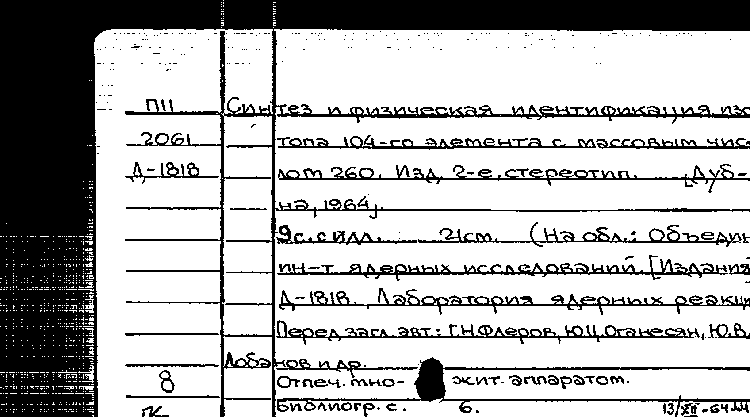 П11 Синтез и физическая идентификация изо
2061 топа 104-го элемента с массовым чис-
Д-1818 лом 260. Изд. 2-е, стереотип. [Дуб-
на, 1964].
9с. с илл. 21см. (На обл.: Объедин
ин-т ядерных исследований. [Издания]
Д-1818. Лаборатория ядерных реакц
Перед загл. авт.: Г.Н.Флеров, Ю.Ц.Оганесян, Ю.В.
Лобанов и др.
8 Отпеч. мно- жит. аппаратом.
Библиогр. с. 6. 13/XII-64